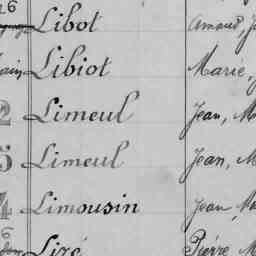 26 Libot Arnaud, J
Libiot Marie, J
2 Limeul Jean, M
5 Limeul Jean, M
4 Limousin Jean, Ma
6 Lizé Pierre M